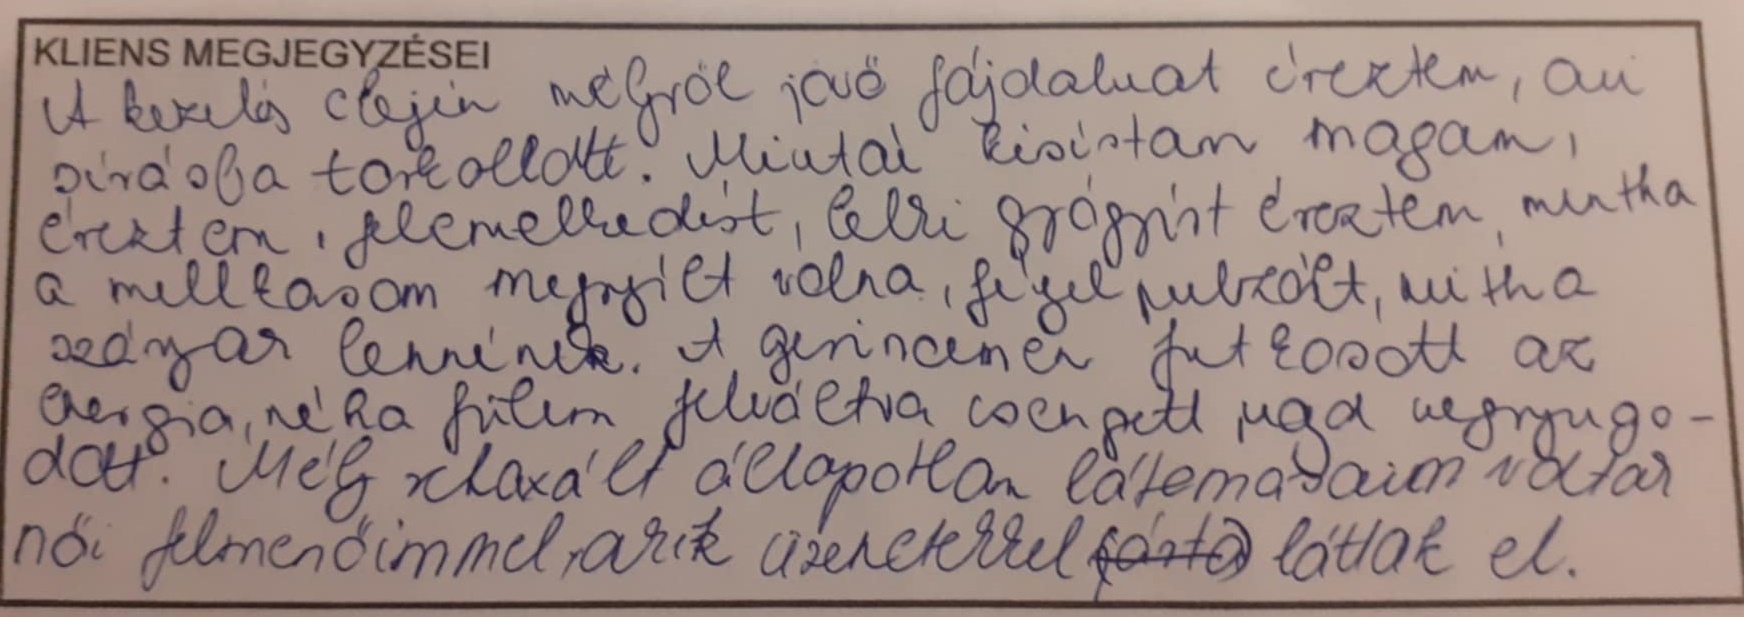 KLIENS MEGJEGYZÉSEI
A kezelés elején mélyről jövő fájdalmat éreztem, ami
sírásba torkollott. Miután kisírtam magam,
éreztem, felemelkedést, lelki gyógyírt éreztem, mintha
a mellkasom megnyílt volna, fejjel pulzált, mitha
szárnyak lennének. A gerincemen futkosott az
energia, néha fülem felváltva csengett, majd megnyugo-
dott. Mély relaxált állapotban látomásaim voltak
női felmenőimmel, akik üzenetekkel láttak el.